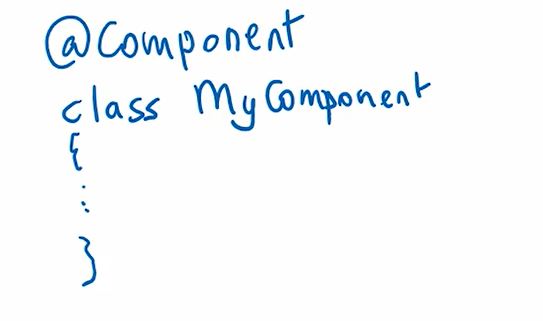 @Component
class MyComponent
{
⋮
}